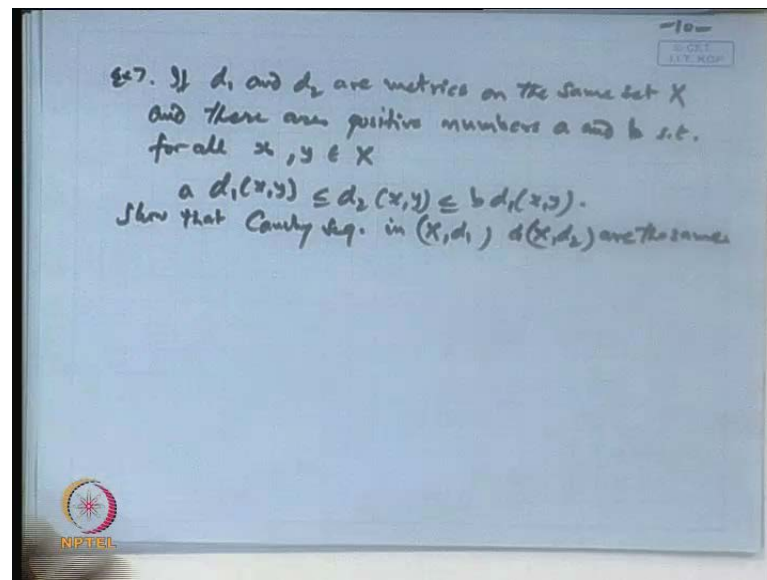 -10-
© CET
I.I.T. KGP
Ex7. If d₁ and d₂ are metrics on the same set X
and there are positive numbers a and b s.t.
for all x, y ∈ X
a d₁(x,y) ≤ d₂(x,y) ≤ b d₁(x,y).
Show that Cauchy seq. in (X,d₁) & (X,d₂) are the same
NPTEL